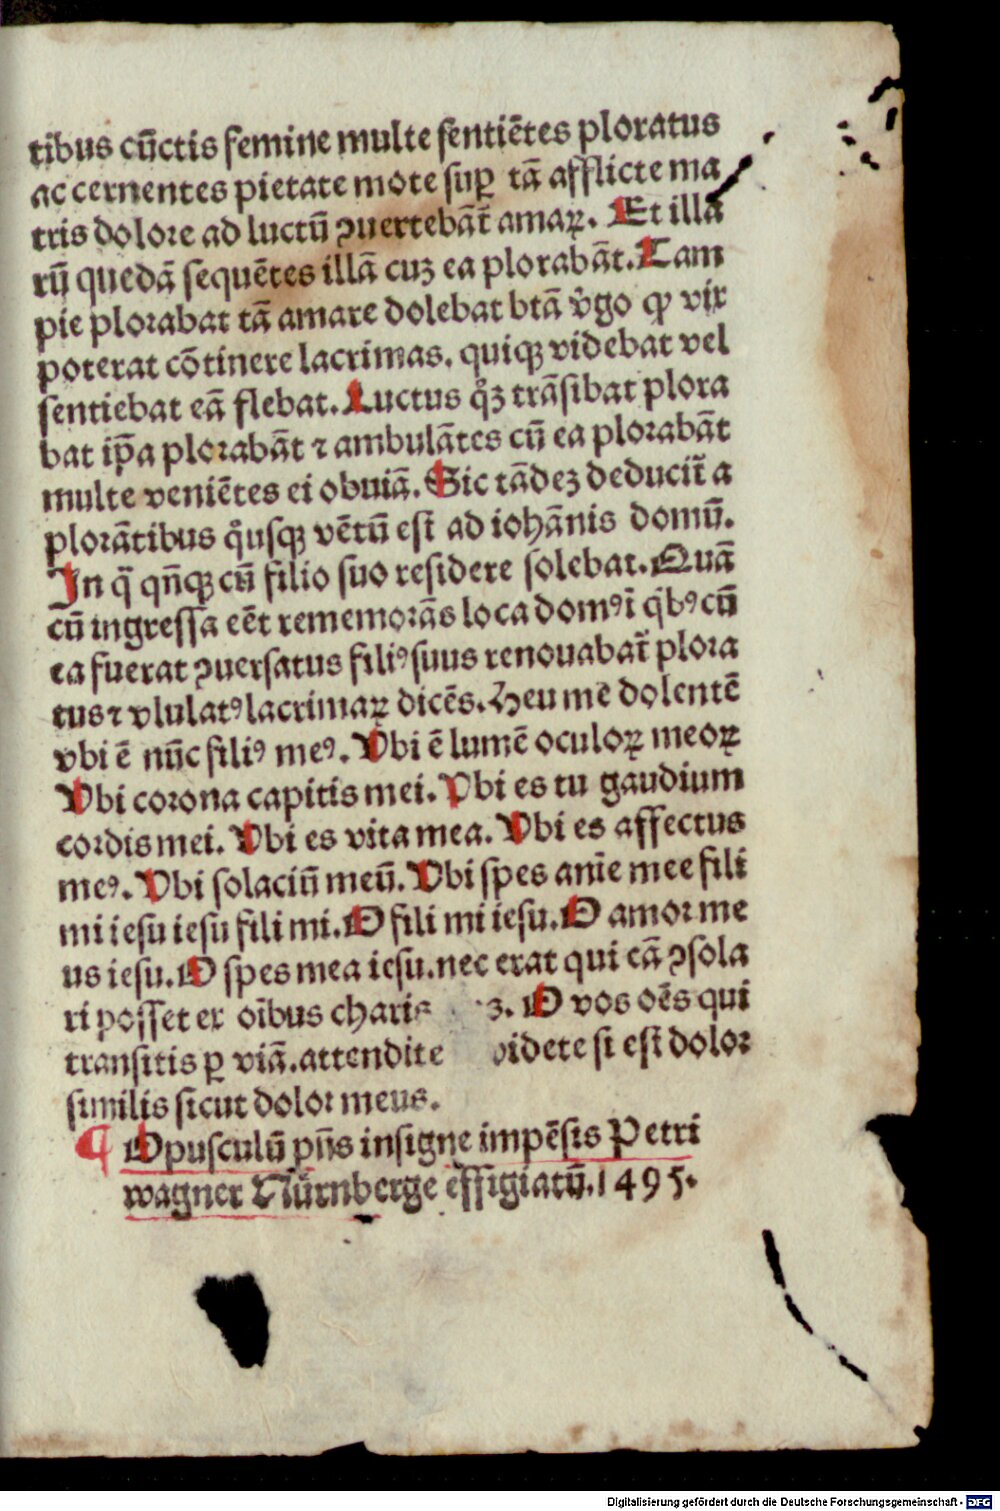 tibus cūctis femine multe sentiētes ploratus
ac cernentes pietate mote suꝑ tā afflicte ma
tris dolore ad luctū ꝯuertebāt̄ amaꝝ. Et illa
rū quedā sequētes illā cuꝫ ea plorabāt. Tam
pie plorabat tā amare dolebat btā v̓go ꝙ vix
poterat cōtinere lacrimas. quiqꝫ videbat vel
sentiebat eā flebat. Luctus qͦꝫ trāsibat plora
bat ip̄a plorabāt ⁊ ambulātes cū ea plorabāt
multe veniētes ei obuiā. Sic tādeꝫ deducit̄ a
plorātibus qͦusqꝫ vētū est ad iohānis domū.
In q̄ qn̄qꝫ cū filio suo residere solebat. Quā
cū ingressa eēt rememorās loca domꝰ ī qͥbꝰ cū
ea fuerat ꝯuersatus filiꝰ suus renouabat̄ plora
tus ⁊ vlulatꝰ lacrimaꝝ dicēs. Heu me dolentē
vbi ē nūc filiꝰ meꝰ. Vbi ē lumē oculoꝝ meoꝝ
Vbi corona capitis mei. Vbi es tu gaudium
cordis mei. Vbi es vita mea. Vbi es affectus
meꝰ. Vbi solaciū meū. Vbi spes anīe mee fili
mi iesu iesu fili mi. O fili mi iesu. O amor me
us iesu. O spes mea iesu. nec erat qui eā ꝯsola
ri posset ex oībus charis ꝫ. O vos oēs qui
transitis ꝑ viā. attendite videte si est dolor
similis sicut dolor meus.
¶ Opusculū pn̄s insigne impēsis Petri
wagner Nürnberge effigiatū. 1495.
Digitalisierung gefördert durch die Deutsche Forschungsgemeinschaft - DFG